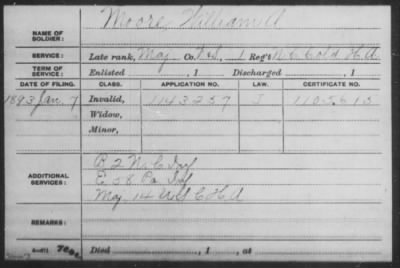 Moore, William A
NAME OF SOLDIER:
SERVICE: Late rank, Maj Co. F&S, 1 Reg't N.C. Cold H.A.
TERM OF SERVICE: Enlisted , 1 Discharged , 1
DATE OF FILING. CLASS. APPLICATION NO. LAW. CERTIFICATE NO.
1893 Jan. 7 Invalid, 1143257 J 1105615
Widow,
Minor,
ADDITIONAL SERVICES:
B 2 N.C. Inf
E 58 Pa Inf
Maj 14 U.S.C.H.A
REMARKS:
Died , 1 , at